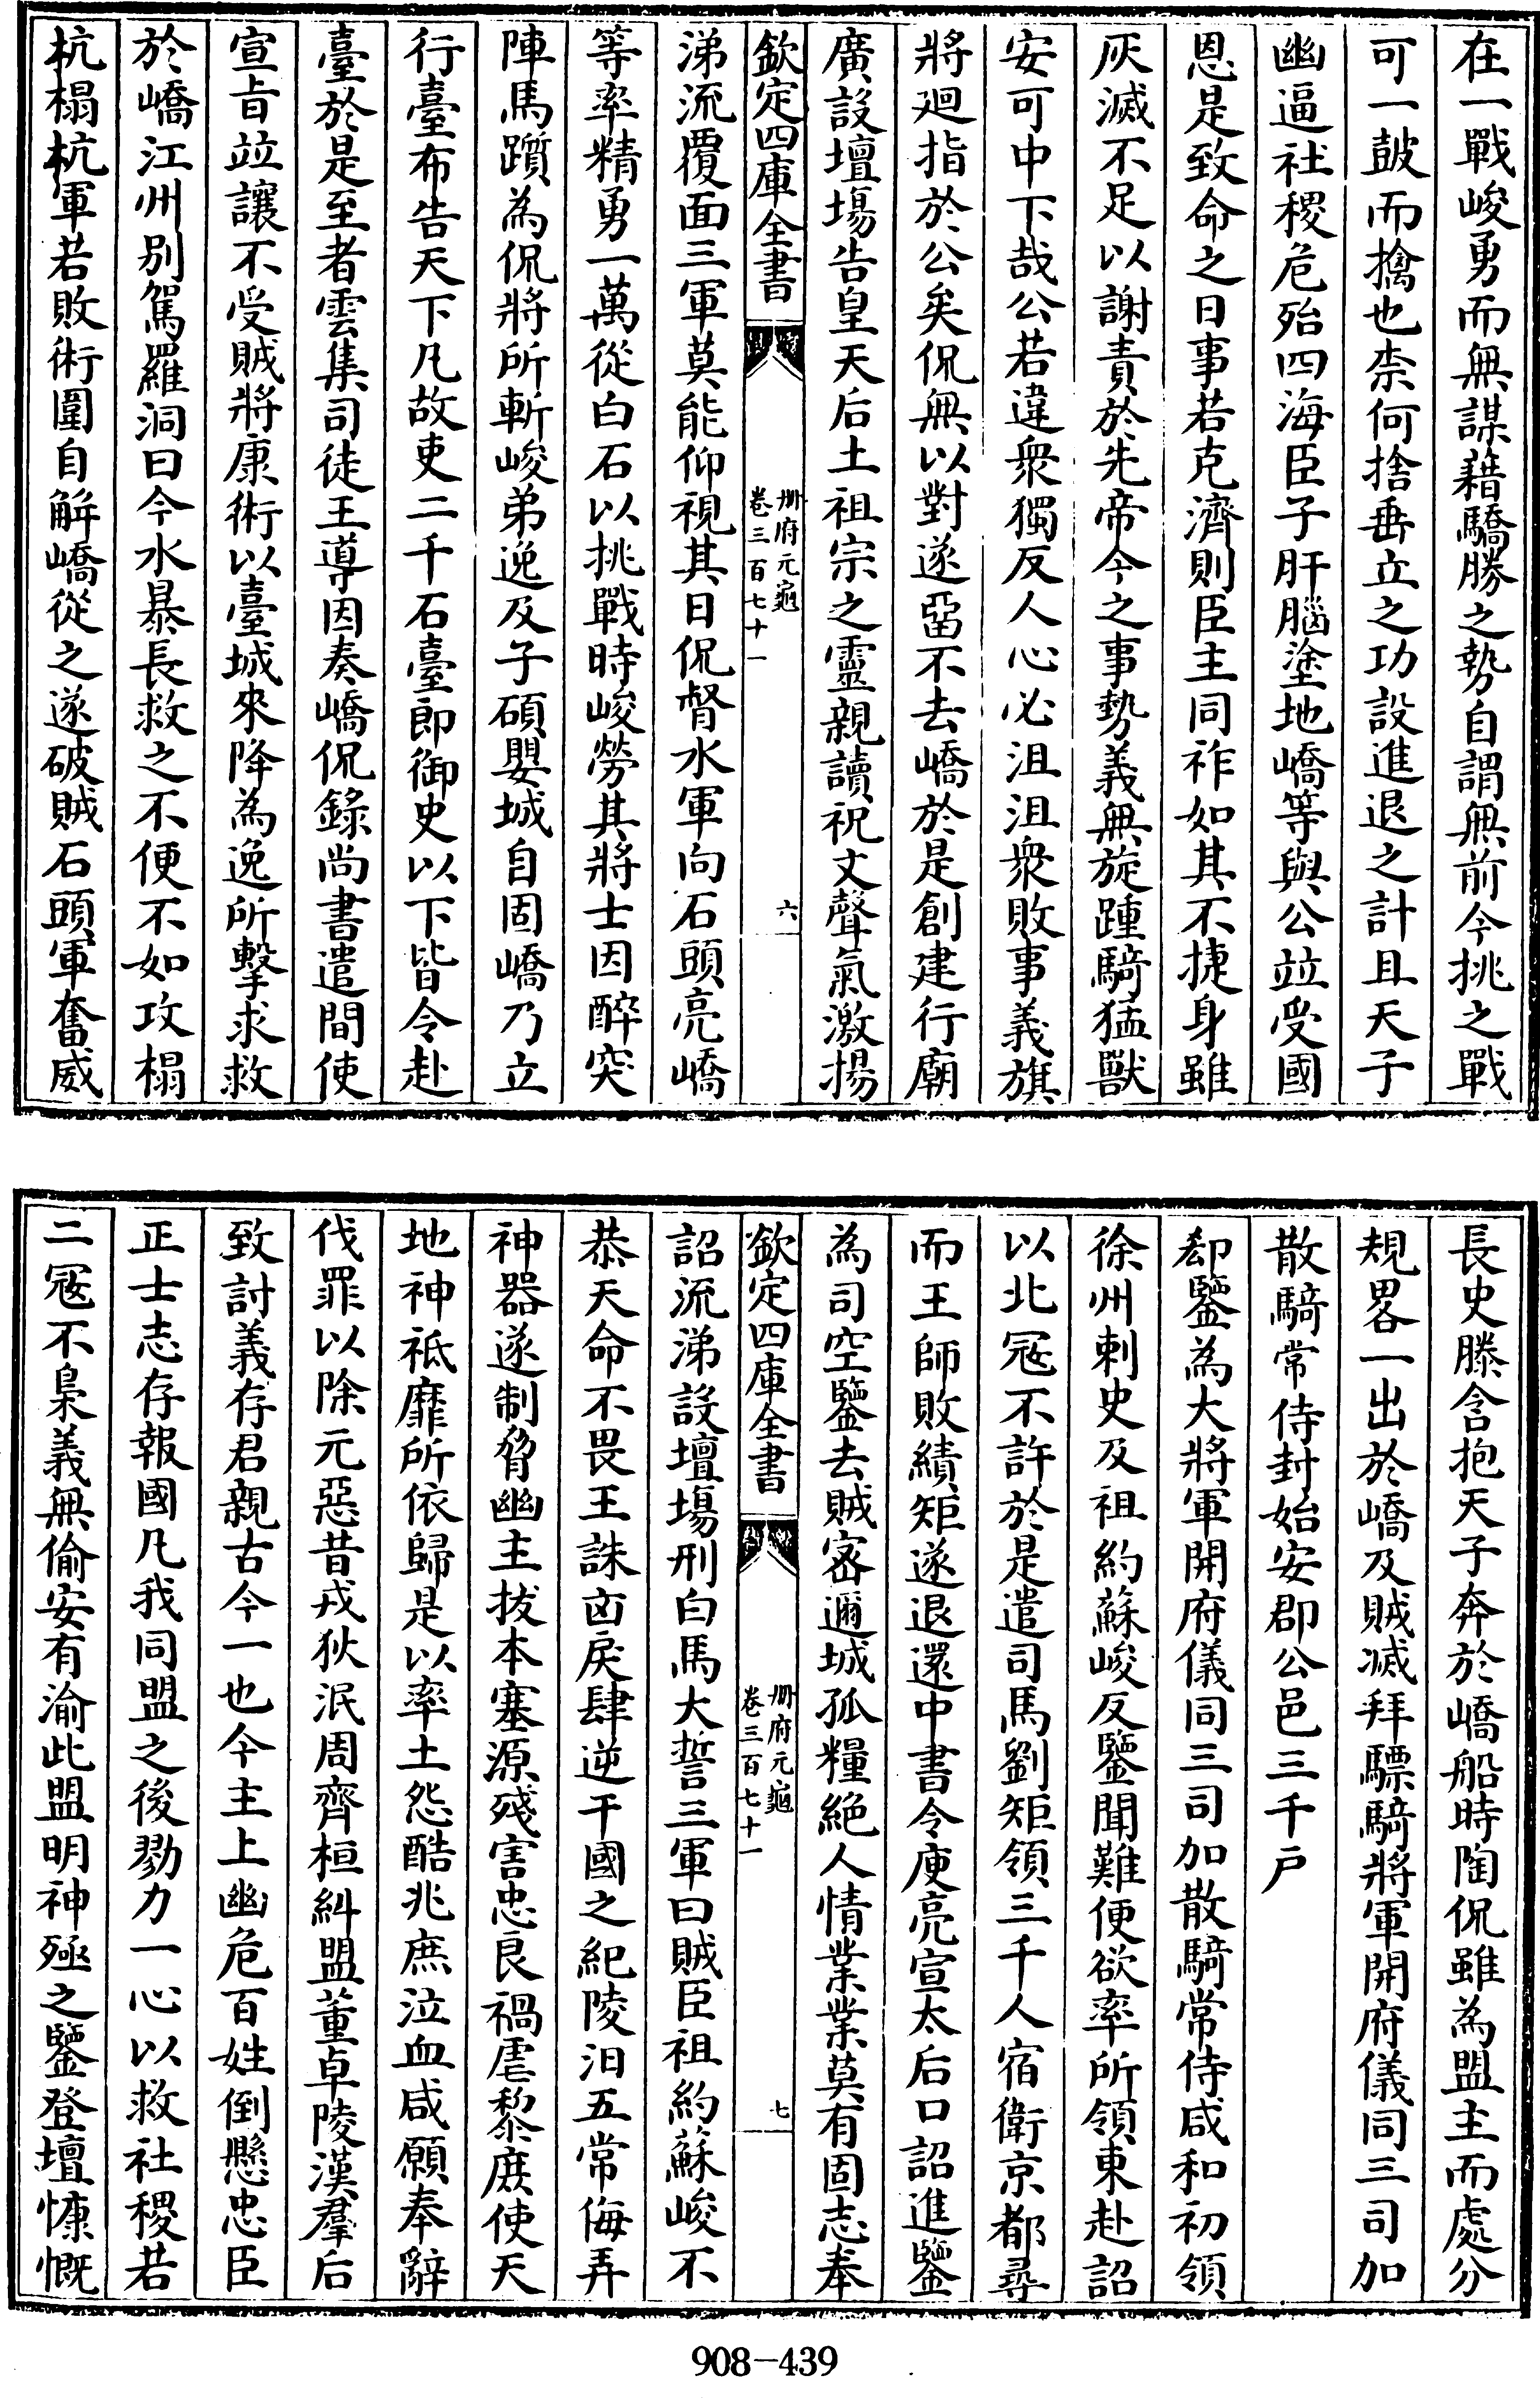 在一戰峻勇而無謀藉驕勝之勢自謂無前今挑之戰
可一鼓而擒也柰何捨垂立之功設進退之計且天子
幽逼社稷危殆四海臣子肝腦塗地嶠等與公竝受國
恩是致命之日事若克濟則臣主同祚如其不捷身雖
灰滅不足以謝責於先帝今之事勢義無旋踵騎猛獸
安可中下哉公若違衆獨反人心必沮沮衆敗事義旗
將迴指於公矣侃無以對遂留不去嶠於是創建行廟
廣設壇塲告皇天后土祖宗之靈親讀祝文聲氣激揚
欽定四庫全書
册府元龜
卷三百七十一
六
涕流覆面三軍莫能仰視其日侃督水軍向石頭亮嶠
等率精勇一萬從白石以挑戰時峻勞其將士因醉突
陣馬躓為侃將所斬峻弟逸及子碩嬰城自固嶠乃立
行臺布告天下凡故吏二千石臺郎御史以下皆令赴
臺於是至者雲集司徒王導因奏嶠侃錄尚書遣間使
宣旨竝讓不受賊將康術以臺城來降為逸所擊求救
於嶠江州别駕羅洞曰今水暴長救之不便不如攻榻
杭榻杭軍若敗術圍自解嶠從之遂破賊石頭軍奮威
長史滕含抱天子奔於嶠船時陶侃雖為盟主而處分
規畧一出於嶠及賊滅拜驃騎將軍開府儀同三司加
散騎常侍封始安郡公邑三千户
郄鑒為大將軍開府儀同三司加散騎常侍咸和初領
徐州刺史及祖約蘇峻反鑒聞難便欲率所領東赴詔
以北冦不許於是遣司馬劉矩領三千人宿衛京都尋
而王師敗績矩遂退還中書令庾亮宣太后口詔進鑒
為司空鑒去賊宻邇城孤糧絶人情業業莫有固志奉
欽定四庫全書
册府元龜
卷三百七十一
七
詔流涕設壇塲刑白馬大誓三軍曰賊臣祖約蘇峻不
恭天命不畏王誅凶戾肆逆干國之紀陵汩五常侮弄
神器遂制脅幽主拔本塞源殘害忠良禍虐黎庶使天
地神祇靡所依歸是以率土怨酷兆庶泣血咸願奉辭
伐罪以除元惡昔戎狄泯周齊桓糾盟董卓陵漢羣后
致討義存君親古今一也今主上幽危百姓倒懸忠臣
正士志存報國凡我同盟之後勠力一心以救社稷若
二冦不梟義無偷安有渝此盟明神殛之鑒登壇慷慨
908-439